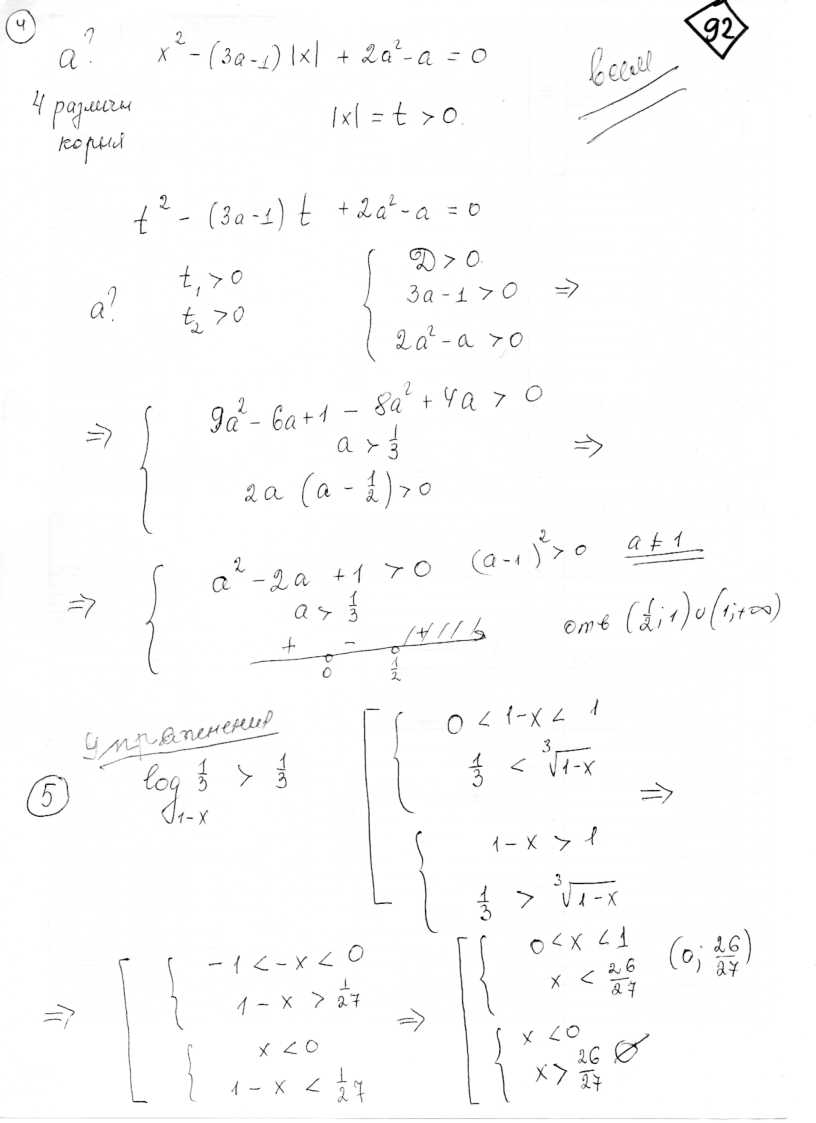 4
92
a? x² - (3a-1)|x| + 2a² - a = 0
всем
4 различн
корня
|x| = t > 0.
t² - (3a-1) t + 2a² - a = 0
a? t₁ > 0
t₂ > 0
{ D > 0
3a - 1 > 0 ⇒
2a² - a > 0
⇒ { 9a² - 6a + 1 - 8a² + 4a > 0
a > 1/3 ⇒
2a (a - 1/2) > 0
⇒ { a² - 2a + 1 > 0 (a-1)² > 0 a ≠ 1
a > 1/3
+ - +
0 1/2
отв (1/2; 1) ∪ (1; +∞)
Упражнения
5
log₁₋ₓ 1/3 > 1/3
[ { 0 < 1-x < 1
1/3 < ∛(1-x) ⇒
{ 1-x > 1
1/3 > ∛(1-x)
⇒ [ { -1 < -x < 0
1-x > 1/27
{ x < 0
1-x < 1/27
⇒ [ { 0 < x < 1
x < 26/27 (0; 26/27)
{ x < 0
x > 26/27 ∅